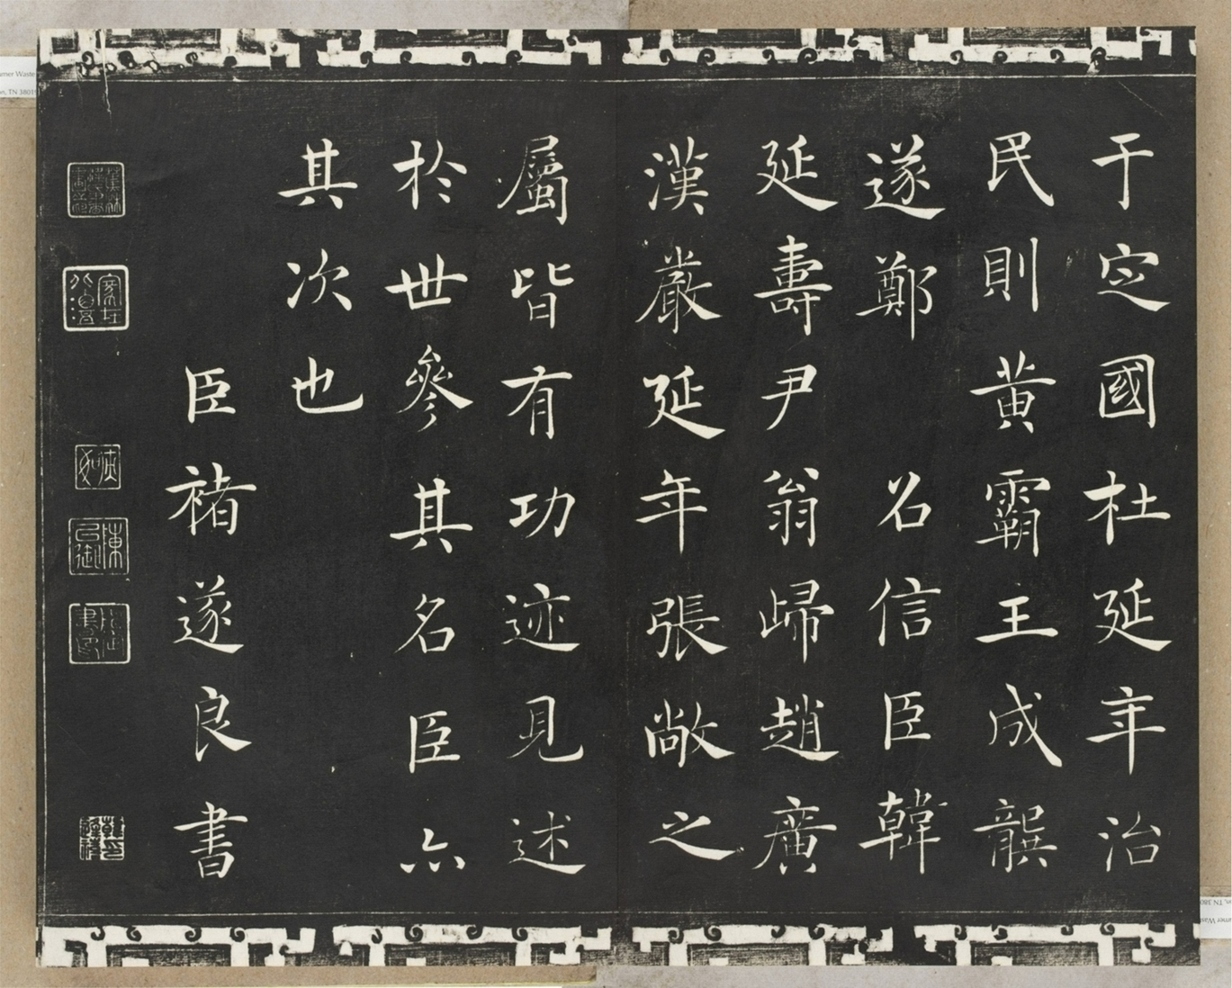 于定國杜延年治
民則黃霸王成龔
遂鄭 名信臣韓
延壽尹翁歸趙廣
漢嚴延年張敞之
屬皆有功迹見述
於世參其名臣亦
其次也
臣褚遂良書